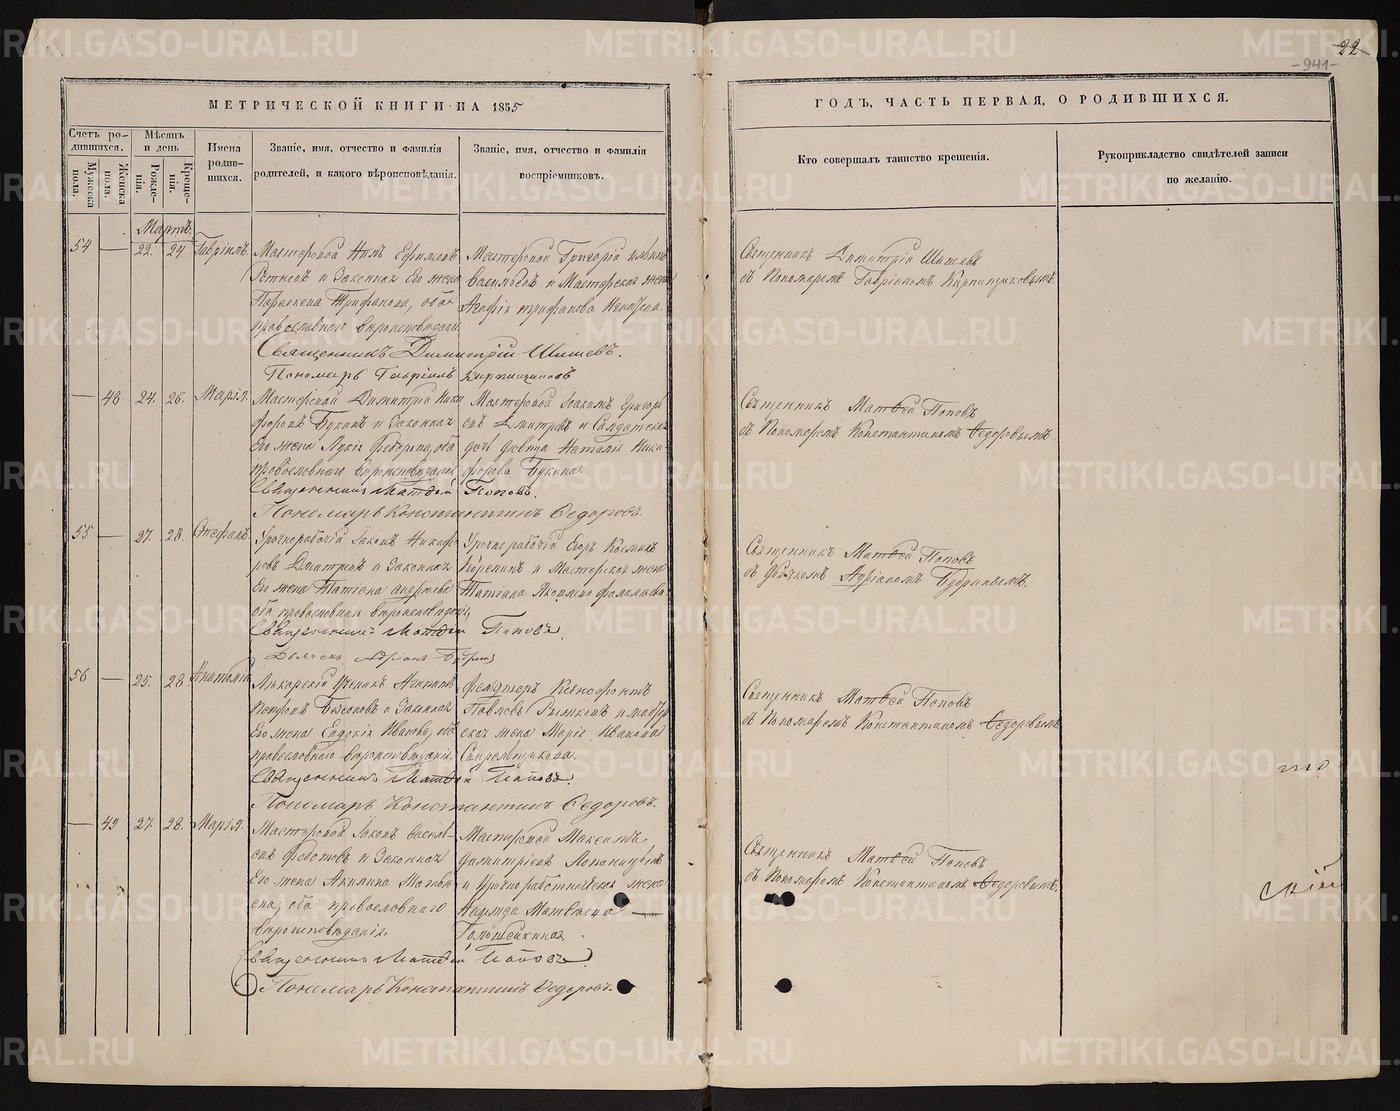 22
-941-
МЕТРИЧЕСКОЙ КНИГИ НА 1855
ГОДЪ, ЧАСТЬ ПЕРВАЯ, О РОДИВШИХСЯ.
Счетъ родившихся.
Мужеска пола.
Женска пола.
Мѣсяцъ и день
Рожденія.
Крещенія.
Имена родившихся.
Званіе, имя, отчество и фамилія
родителей, и какого вѣроисповѣданія.
Званіе, имя, отчество и фамилія
воспріемниковъ.
Кто совершалъ таинство крещенія.
Рукоприкладство свидѣтелей записи
по желанію.
Мартъ.
54 — 22. 24. Гавріилъ. Мастеровой Нилъ Ефимовъ Мастеровой Григорій
и Законная Его жена Васильевъ и Мастерская жена
Параскева Трифанова, оба Агафія Трифанова
православнаго вѣроисповѣданія
Священникъ Димитрій Шишевъ
съ Пономаремъ Гавріиломъ Кирпищиковымъ.
Священникъ Димитрій Шишевъ.
Пономарь Гавріилъ Кирпищиковъ
— 48 24. 26. Марія. Мастеровой Димитрій Ники Мастеровой Іоакимъ Григорь
форовъ Букинъ и Законная евъ Дмитревъ и Солдатская
Его жена Лукія Федорова, оба дочь девица Наталія Ники
православнаго вѣроисповѣданія форова Букина.
Священникъ Матвей Поповъ
съ Пономаремъ Константиномъ Ѳедоровымъ.
Священникъ Матвей Поповъ.
Пономарь Константинъ Ѳедоровъ.
55 — 27. 28. Стефанъ. Урочнорабочій Іаковъ Никифо Урочнорабочій Егоръ Козминъ
ровъ Дмитревъ и Законная Коренинъ и Мастерская жена
Его жена Татіана Татіана Яковлева
оба православнаго вѣроисповѣданія,
Священникъ Матвей Поповъ
съ Дьячкомъ Адріаномъ Будринымъ.
Священникъ Матвей Поповъ.
Дьячекъ Адріанъ Будринъ
56 — 25. 28. Лекарскій Ученикъ Фельдшеръ Ксенофонтъ
Петровъ и Законная Павловъ и мастер
Его жена Евдокія Иванова, оба ская жена Марія Иванова
православнаго вѣроисповѣданія.
Священникъ Матвей Поповъ
съ Пономаремъ Константиномъ Ѳедоровымъ
Священникъ Матвей Поповъ
Пономарь Константинъ Ѳедоровъ.
— 49 27. 28. Марія. Мастеровой Іаковъ Василь- Мастеровой Максимъ
евъ Федотовъ и Законная Димитріевъ
Его жена Акилина Матвѣ и Урочноработническая жена
ева, оба православнаго Надежда Матвѣева —
вѣроисповѣданія.
Священникъ Матвей Поповъ
съ Пономаремъ Константиномъ Ѳедоровымъ.
Священникъ Матвей Поповъ.
Пономарь Константинъ Ѳедоровъ.
METRIKI.GASO-URAL.RU